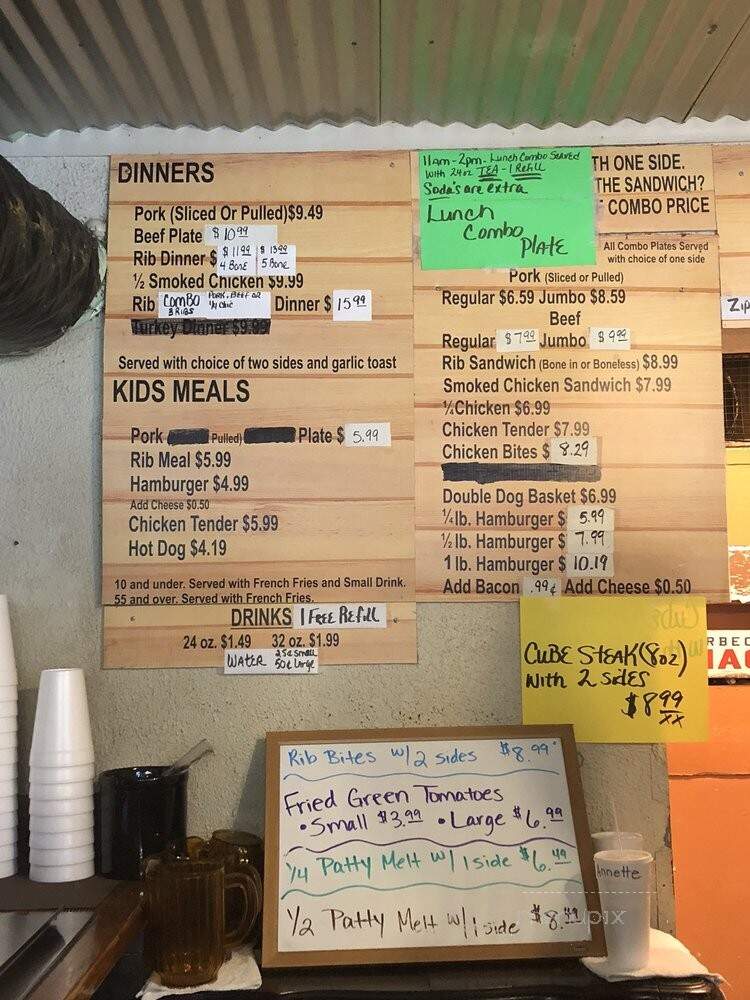 DINNERS
Pork (Sliced Or Pulled)$9.49
Beef Plate $10.99
Rib Dinner $ $11.99 4 Bone $13.99 5 Bone
½ Smoked Chicken $9.99
Rib Combo Pork, Beef or ¼ Chic 3 Ribs Dinner $ 15.99
Turkey Dinner $9.99
Served with choice of two sides and garlic toast
KIDS MEALS
Pork Pulled) Plate $ 5.99
Rib Meal $5.99
Hamburger $4.99
Add Cheese $0.50
Chicken Tender $5.99
Hot Dog $4.19
10 and under. Served with French Fries and Small Drink.
55 and over. Served with French Fries.
DRINKS 1 FREE REfill
24 oz. $1.49 32 oz. $1.99
WATER 25¢ Small
50¢ Large
11am - 2pm - Lunch Combo Served
with 24oz TEA - 1 Refill
Soda's are extra
Lunch
Combo
PlATE
TH ONE SIDE.
THE SANDWICH?
COMBO PRICE
All Combo Plates Served
with choice of one side
Pork (Sliced or Pulled)
Regular $6.59 Jumbo $8.59
Beef
Regular $7.99 Jumbo $9.99
Rib Sandwich (Bone in or Boneless) $8.99
Smoked Chicken Sandwich $7.99
¼Chicken $6.99
Chicken Tender $7.99
Chicken Bites $ 8.29
Double Dog Basket $6.99
¼ lb. Hamburger $ 5.99
½ lb. Hamburger $ 7.99
1 lb. Hamburger $ 10.19
Add Bacon .99¢ Add Cheese $0.50
Zip
CUBE STEAK (8oz)
with 2 sides
$8.99
xx
RBEC
Rib Bites w/ 2 sides $8.99
Fried Green Tomatoes
• Small $3.99 • Large $6.99
1/4 Patty Melt w/ 1 side $6.49
1/2 Patty Melt w/ 1 side $8.49
Annette